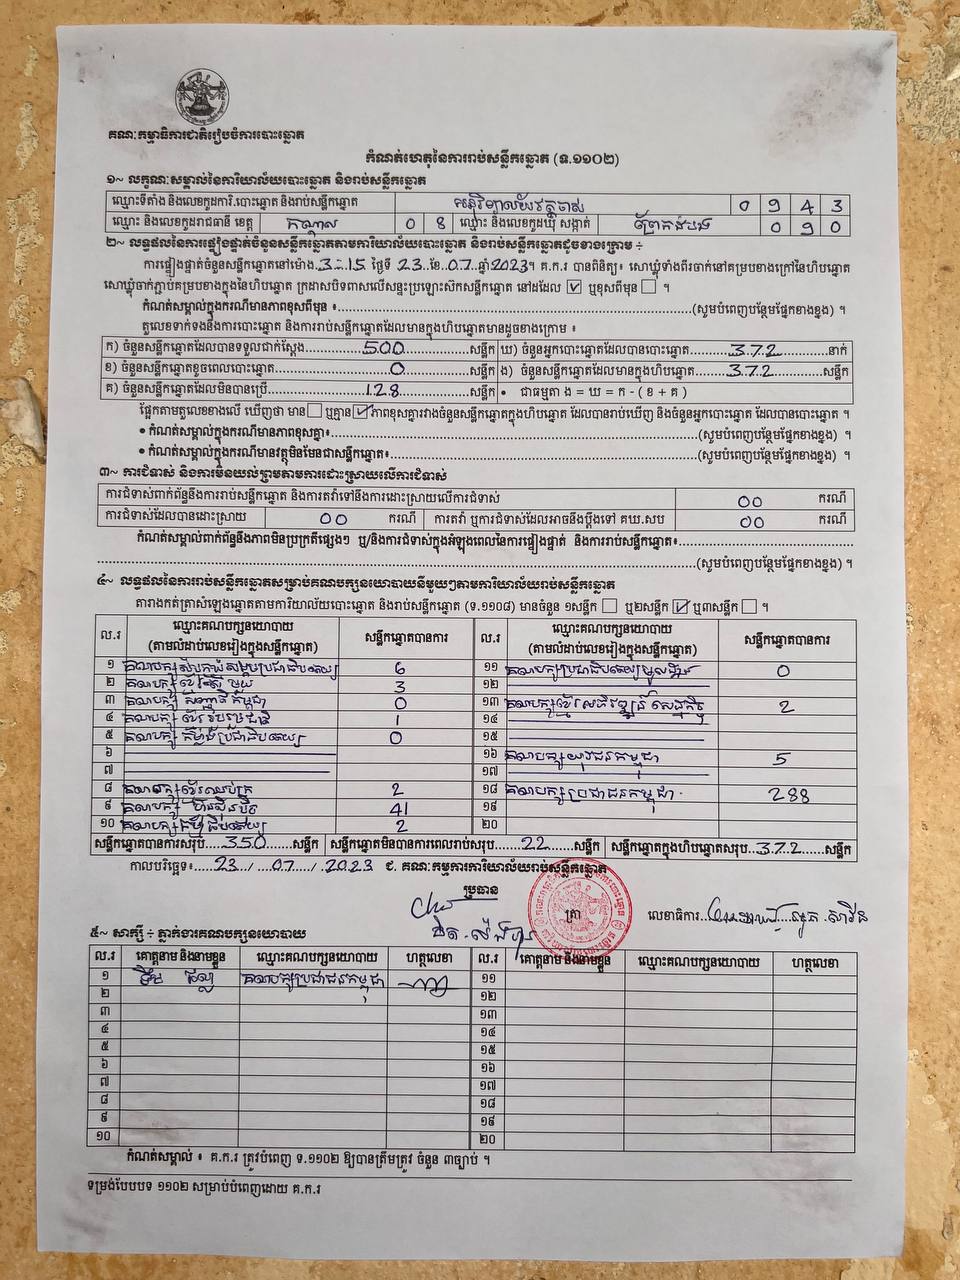 គណៈកម្មាធិការជាតិរៀបចំការបោះឆ្នោត
កំណត់ហេតុនៃការរាប់សន្លឹកឆ្នោត (ទ.១១០២)
១~ លក្ខណៈសម្គាល់នៃការិយាល័យបោះឆ្នោត និងរាប់សន្លឹកឆ្នោត
ឈ្មោះទីតាំង និងលេខកូដការិ.បោះឆ្នោត និងរាប់សន្លឹកឆ្នោត 0 9 4 3
ឈ្មោះ និងលេខកូដរាជធានី ខេត្ត កណ្តាល 0 8 ឈ្មោះ និងលេខកូដឃុំ សង្កាត់ 0 9 0
២~ លទ្ធផលនៃការផ្ទៀងផ្ទាត់ចំនួនសន្លឹកឆ្នោតតាមការិយាល័យបោះឆ្នោត និងរាប់សន្លឹកឆ្នោតដូចខាងក្រោម ÷
ការផ្ទៀងផ្ទាត់ចំនួនសន្លឹកឆ្នោតនៅម៉ោង 3-15 ថ្ងៃទី 23 ខែ 07 ឆ្នាំ 2023។ គ.ក.រ បានពិនិត្យ៖ សោឃ្លុំទាំងពីរចាក់នៅគម្របខាងក្រៅនៃហិបឆ្នោត
សោឃ្លុំចាក់ភ្ជាប់គម្របខាងក្នុងនៃហិបឆ្នោត ក្រដាសបិទពាសលើសន្ទះប្រឡោះសិកសន្លឹកឆ្នោត នៅដដែល ☑ ឬខុសពីមុន ☐ ។
កំណត់សម្គាល់ក្នុងករណីមានភាពខុសពីមុន ៖ (សូមបំពេញបន្ថែមផ្នែកខាងខ្នង) ។
តួលេខទាក់ទងនឹងការបោះឆ្នោត និងការរាប់សន្លឹកឆ្នោតដែលមានក្នុងហិបឆ្នោតមានដូចខាងក្រោម ៖
ក) ចំនួនសន្លឹកឆ្នោតដែលបានទទួលជាក់ស្តែង 500 សន្លឹក ឃ) ចំនួនអ្នកបោះឆ្នោតដែលបានបោះឆ្នោត 372 នាក់
ខ) ចំនួនសន្លឹកឆ្នោតខូចពេលបោះឆ្នោត 0 សន្លឹក ង) ចំនួនសន្លឹកឆ្នោតដែលមានក្នុងហិបឆ្នោត 372 សន្លឹក
គ) ចំនួនសន្លឹកឆ្នោតដែលមិនបានប្រើ 128 សន្លឹក • ជាធម្មតា ង = ឃ = ក - ( ខ + គ )
ផ្អែកតាមតួលេខខាងលើ ឃើញថា មាន ☐ ឬគ្មាន ☑ ភាពខុសគ្នារវាងចំនួនសន្លឹកឆ្នោតក្នុងហិបឆ្នោត ដែលបានរាប់ឃើញ និងចំនួនអ្នកបោះឆ្នោត ដែលបានបោះឆ្នោត ។
• កំណត់សម្គាល់ក្នុងករណីមានភាពខុសគ្នា៖ (សូមបំពេញបន្ថែមផ្នែកខាងខ្នង) ។
• កំណត់សម្គាល់ក្នុងករណីមានវត្ថុមិនមែនជាសន្លឹកឆ្នោត៖ (សូមបំពេញបន្ថែមផ្នែកខាងខ្នង) ។
៣~ ការជំទាស់ និងការមិនយល់ព្រមតាមការដោះស្រាយលើការជំទាស់
ការជំទាស់ពាក់ព័ន្ធនឹងការរាប់សន្លឹកឆ្នោត និងការតវ៉ាទៅនឹងការដោះស្រាយលើការជំទាស់ 00 ករណី
ការជំទាស់ដែលបានដោះស្រាយ 00 ករណី ការតវ៉ា ឬការជំទាស់ដែលអាចនឹងប្តឹងទៅ គឃ.សប 00 ករណី
កំណត់សម្គាល់ពាក់ព័ន្ធនឹងភាពមិនប្រក្រតីផ្សេងៗ ឬ/និងការជំទាស់ក្នុងអំឡុងពេលនៃការផ្ទៀងផ្ទាត់ និងការរាប់សន្លឹកឆ្នោត៖
(សូមបំពេញបន្ថែមផ្នែកខាងខ្នង) ។
៤~ លទ្ធផលនៃការរាប់សន្លឹកឆ្នោតសម្រាប់គណបក្សនយោបាយនីមួយៗតាមការិយាល័យរាប់សន្លឹកឆ្នោត
តារាងកត់ត្រាសំឡេងឆ្នោតតាមការិយាល័យបោះឆ្នោត និងរាប់សន្លឹកឆ្នោត (ទ.១១០៨) មានចំនួន ១សន្លឹក ☐ ឬ២សន្លឹក ☑ ឬ៣សន្លឹក ☐ ។
ល.រ ឈ្មោះគណបក្សនយោបាយ (តាមលំដាប់លេខរៀងក្នុងសន្លឹកឆ្នោត) សន្លឹកឆ្នោតបានការ ល.រ ឈ្មោះគណបក្សនយោបាយ (តាមលំដាប់លេខរៀងក្នុងសន្លឹកឆ្នោត) សន្លឹកឆ្នោតបានការ
១ គណបក្ស 6 ១១ គណបក្សប្រជាធិបតេយ្យមូលដ្ឋាន 0
២ គណបក្សខ្មែរតែមួយ 3 ១២
៣ គណបក្ស កម្ពុជា 0 ១៣ គណបក្សខ្មែរអភិវឌ្ឍន៍សេដ្ឋកិច្ច 2
៤ គណបក្សខ្មែររួបរួមជាតិ 1 ១៤
៥ គណបក្សកម្លាំងប្រជាធិបតេយ្យ 0 ១៥
៦ ១៦ គណបក្សយុវជនកម្ពុជា 5
៧ ១៧
៨ គណបក្សខ្មែរឈប់ក្រ 2 ១៨ គណបក្សប្រជាជនកម្ពុជា 288
៩ គណបក្សហ៊្វុនស៊ិនប៉ិច 41 ១៩
១០ គណបក្សធម្មាធិបតេយ្យ 2 ២០
សន្លឹកឆ្នោតបានការសរុប 350 សន្លឹក សន្លឹកឆ្នោតមិនបានការពេលរាប់សរុប 22 សន្លឹក សន្លឹកឆ្នោតក្នុងហិបឆ្នោតសរុប 372 សន្លឹក
កាលបរិច្ឆេទ៖ 23 / 07 / 2023 ជ. គណៈកម្មការការិយាល័យរាប់សន្លឹកឆ្នោត
ប្រធាន
ត្រា លេខាធិការ
៥~ សាក្សី ÷ ភ្នាក់ងារគណបក្សនយោបាយ
ល.រ គោត្តនាម និងនាមខ្លួន ឈ្មោះគណបក្សនយោបាយ ហត្ថលេខា ល.រ គោត្តនាម និងនាមខ្លួន ឈ្មោះគណបក្សនយោបាយ ហត្ថលេខា
១ គណបក្សប្រជាជនកម្ពុជា ១១
២ ១២
៣ ១៣
៤ ១៤
៥ ១៥
៦ ១៦
៧ ១៧
៨ ១៨
៩ ១៩
១០ ២០
កំណត់សម្គាល់ ៖ គ.ក.រ ត្រូវបំពេញ ទ.១១០២ ឱ្យបានត្រឹមត្រូវ ចំនួន ៣ច្បាប់ ។
ទម្រង់បែបបទ ១១០២ សម្រាប់បំពេញដោយ គ.ក.រ